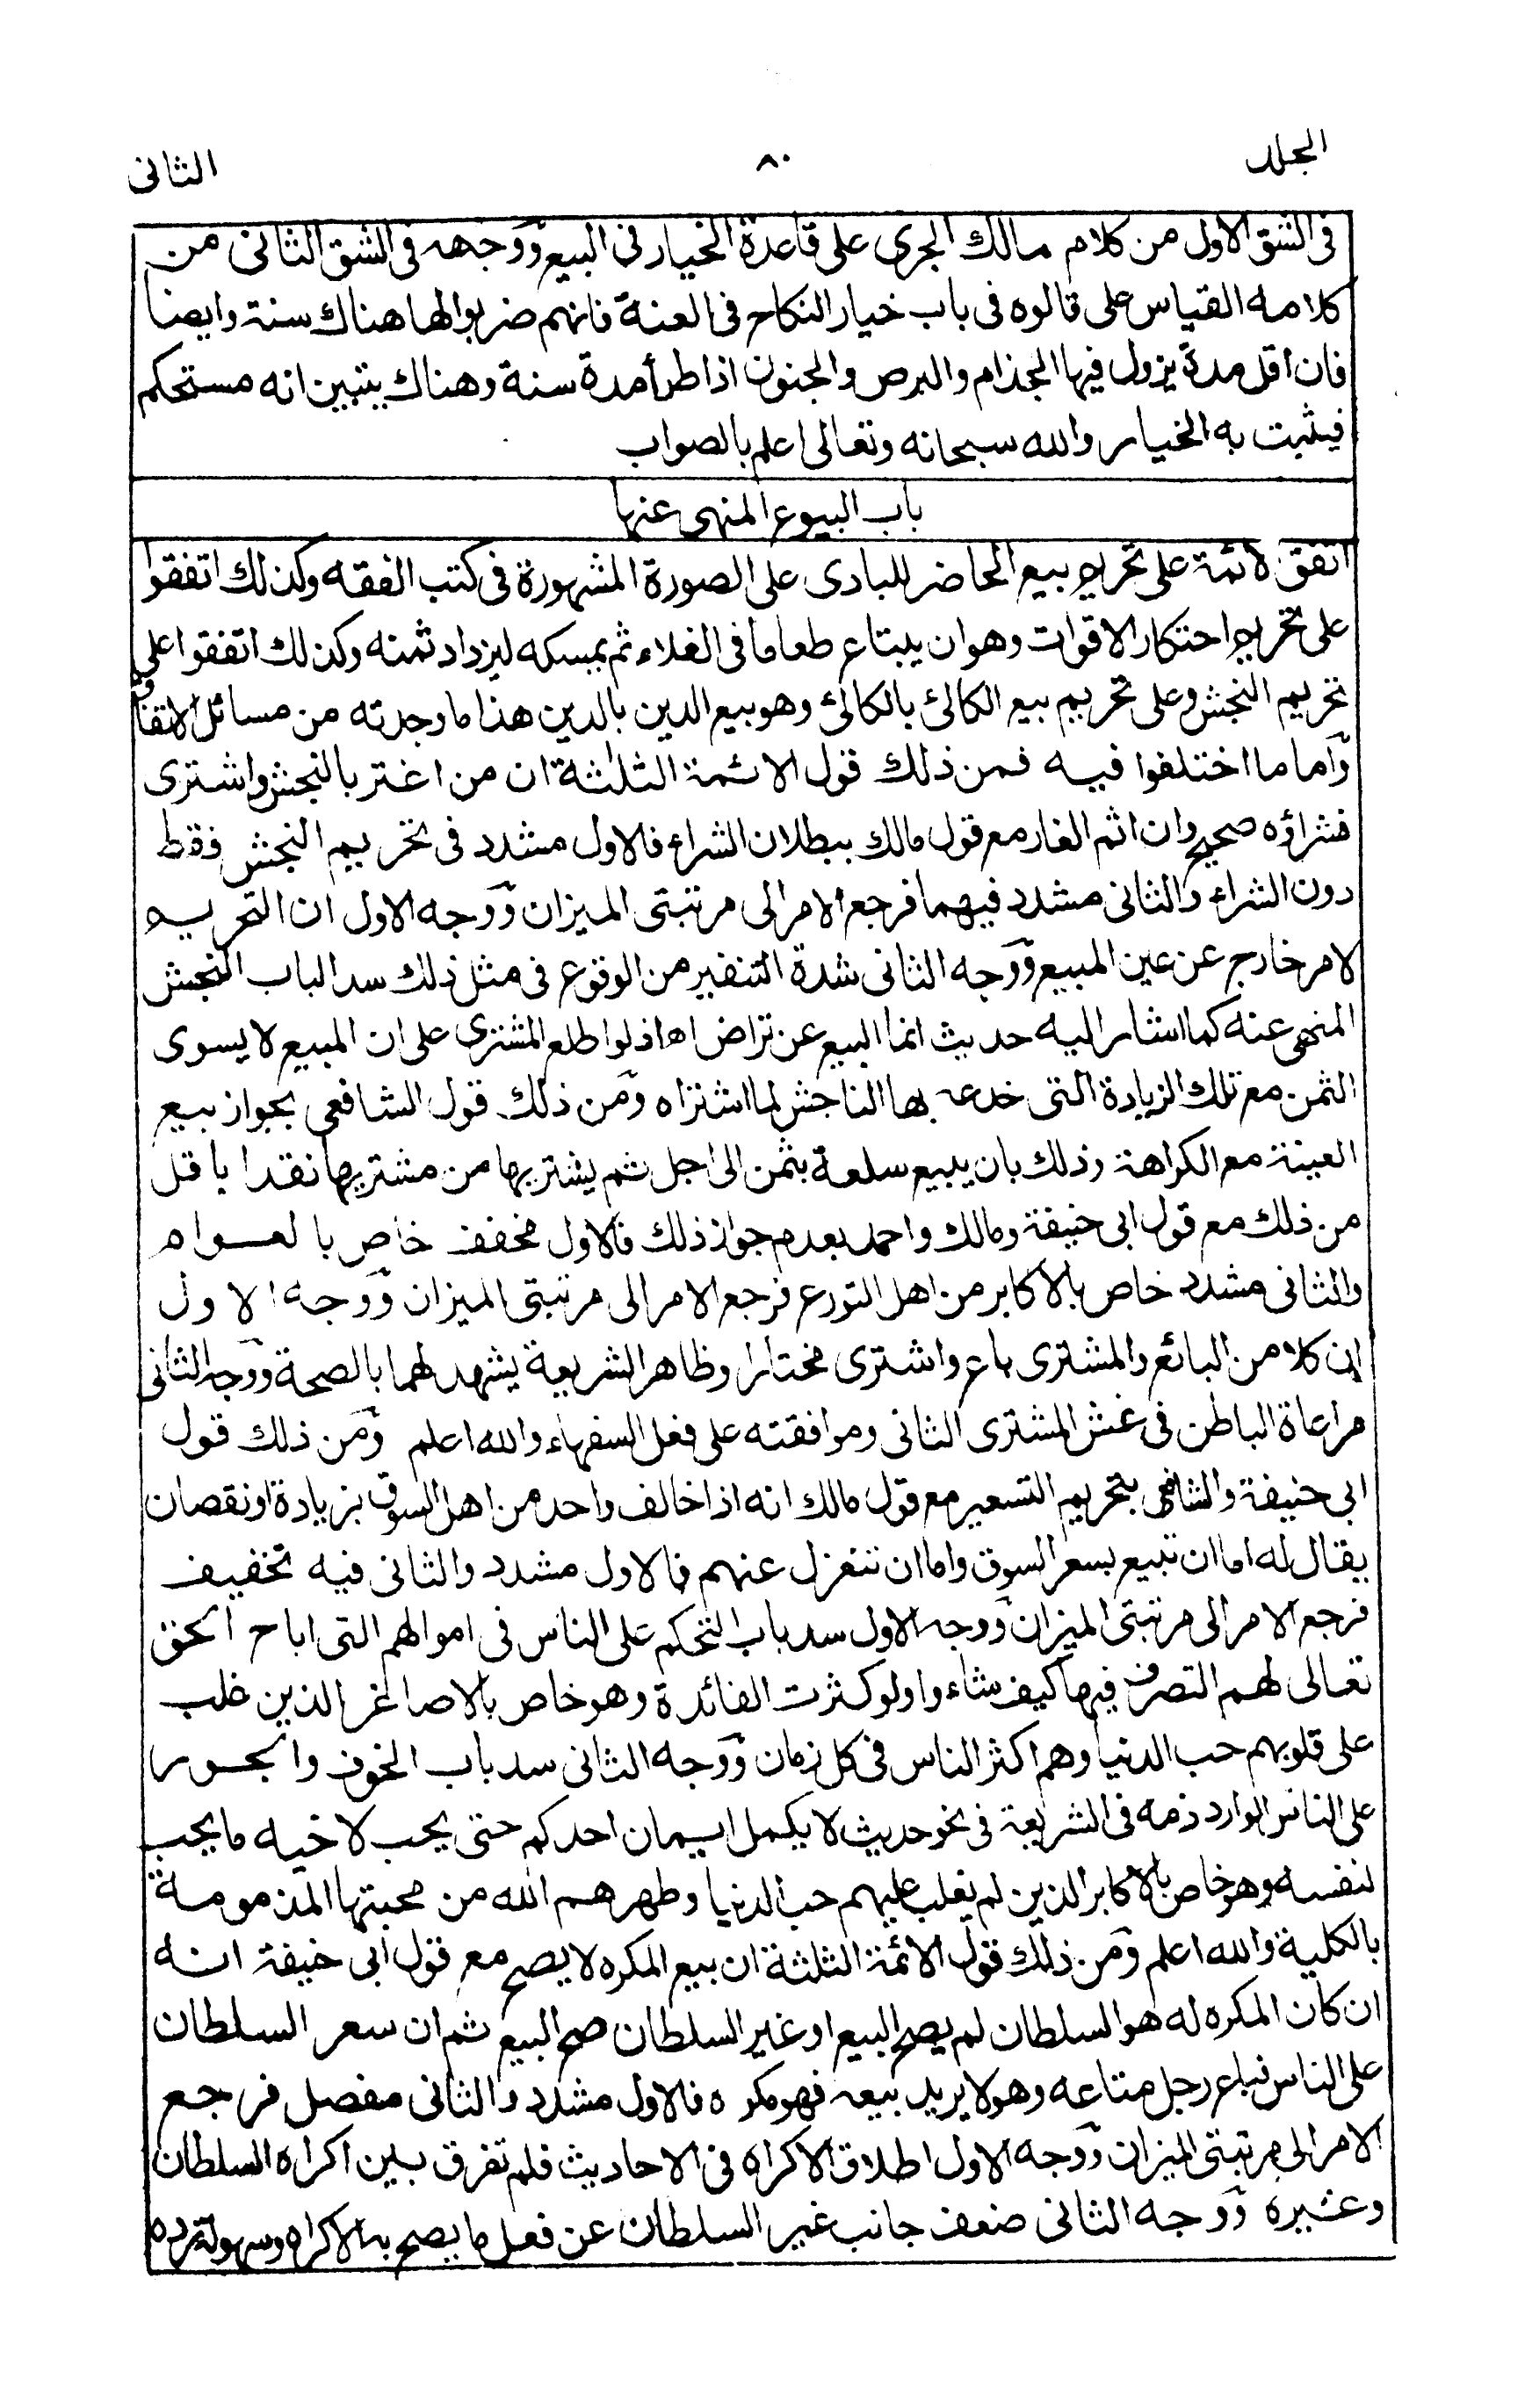 الجلد ٨٠ الثانى
فى الشق الاول من كلام مالك الجرى على قاعدة الخيار فى البيع ووجهه فى الشق الثانى من
كلامه القياس على قالوه فى باب خيار النكاح فى العنة فانهم ضربوا لها هناك سنة وايضا
فان اقل مدة يزول فيها الجذام والبرص والجنون اذا طرأ مدة سنة وهناك يتبين انه مستحكم
فيثبت به الخيار والله سبحانه وتعالى اعلم بالصواب
باب البيوع المنهى عنها
اتفق لائمة على تحريم بيع الحاضر للبادى على الصورة المشهورة فى كتب الفقه وكذلك اتفقوا
على تحريم احتكار الاقوات وهو ان يبتاع طعاما فى الغلاء ثم يمسكه ليزداد ثمنه وكذلك اتفقوا على
تحريم النجش وعلى تحريم بيع الكالئ بالكالئ وهو بيع الدين بالدين هذا ما وجدته من مسائل الاتفاق
واما ما اختلفوا فيه فمن ذلك قول الائمة الثلثة ان من اغتر بالنجش واشترى
فشراؤه صحيح وان اثم الغار مع قول مالك ببطلان الشراء فالاول مشدد فى تحريم النجش فقط
دون الشراء والثانى مشدد فيهما فرجع الامر الى مرتبتى الميزان ووجه الاول ان التحريم
لامر خارج عن عين المبيع ووجه الثانى شدة التنفير من الوقوع فى مثل ذلك سدا لباب النجش
المنهى عنه كما اشار اليه حديث انما البيع عن تراض اه اذ لو اطلع المشترى على ان المبيع لا يسوى
الثمن مع تلك الزيادة التى خدعه بها الناجش لما اشتراه ومن ذلك قول الشافعى بجواز بيع
العينة مع الكراهة وذلك بان يبيع سلعة بثمن الى اجل ثم يشتريها من مشتريها نقدا باقل
من ذلك مع قول ابى حنيفة ومالك واحمد بعدم جواز ذلك فالاول مخفف خاص بالعوام
والثانى مشدد خاص بالاكابر من اهل التورع فرجع الامر الى مرتبتى الميزان ووجه الاول
ان كلا من البائع والمشترى باع واشترى مختارا وظاهر الشريعة يشهد لهما بالصحة ووجه الثانى
مراعاة الباطن فى غش المشترى الثانى وموافقته على فعل السفهاء والله اعلم ومن ذلك قول
ابى حنيفة والشافعى بتحريم التسعير مع قول مالك انه اذا خالف واحد من اهل السوق بزيادة او نقصان
يقال له اما ان تبيع بسعر السوق واما ان تنعزل عنهم فالاول مشدد والثانى فيه تخفيف
فرجع الامر الى مرتبتى الميزان ووجه الاول سد باب التحكم على الناس فى اموالهم التى اباح الحق
تعالى لهم التصرف فيها كيف شاء واولو كثرت الفائدة وهو خاص بالاصاغر الذين غلب
على قلوبهم حب الدنيا وهم اكثر الناس فى كل زمان ووجه الثانى سد باب الخوف والجور
على الناس الوارد ذمه فى الشريعة فى نحو حديث لا يكمل ايمان احدكم حتى يحب لاخيه ما يحب
لنفسه وهو خاص بالاكابر الذين لم يغلب عليهم حب الدنيا وطهرهم الله من محبتها المذمومة
بالكلية والله اعلم ومن ذلك قول الائمة الثلثة ان بيع المكره لا يصح مع قول ابى حنيفة انه
ان كان المكره له هو السلطان لم يصح البيع او غير السلطان صح البيع ثم ان سعر السلطان
على الناس فباع رجل متاعه وهو لا يريد بيعه فهو مكره فالاول مشدد والثانى مفصل فرجع
الامر الى مرتبتى الميزان ووجه الاول اطلاق الاكراه فى الاحاديث فلم تفرق بين اكراه السلطان
وغيره ووجه الثانى ضعف جانب غير السلطان عن فعل ما يصح به الاكراه وسهولة رده